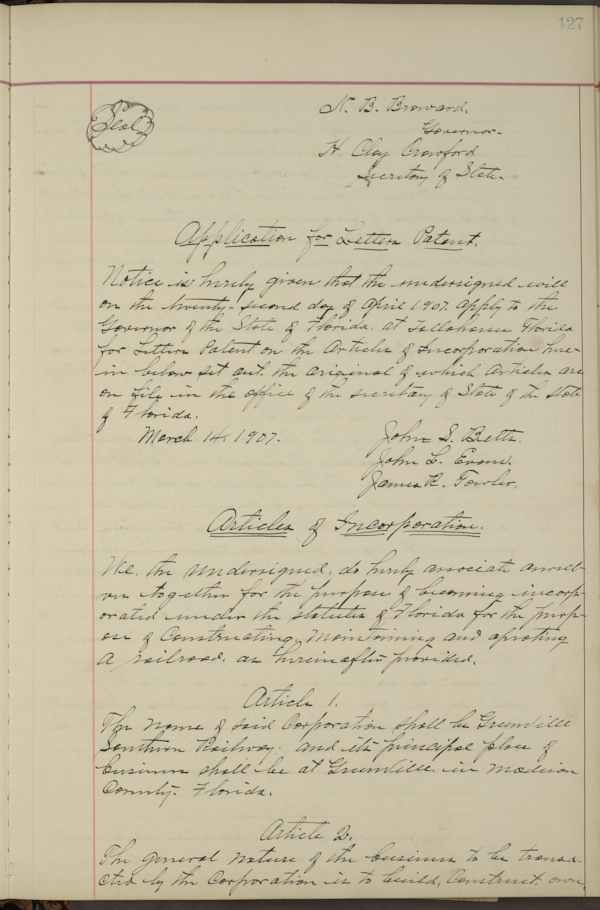 127
Seal
N. B. Broward.
Governor.
H. Clay Crawford
Secretary of State.
Application for Letters Patent.
Notice is hereby given that the undersigned will
on the twenty-second day of April 1907. apply to the
Governor of the State of Florida. at Tallahassee Florida
for Letters Patent on the Articles of Incorporation here-
in below set out. the original of which Articles are
on file in the office of the secretary of State of the State
of Florida.
March 14. 1907.
John S. Betts.
John L. Evans.
James R. Fowler.
Articles of Incorporation.
We. the undersigned, do hereby associate oursel-
ves together for the purpose of becoming incorp-
orated under the statutes of Florida for the purp-
ose of Constructing, Maintaining and operating
a railroad. as hereinafter provided.
Article 1.
The name of said Corporation shall be Greenville
Southern Railway. and its principal place of
business shall be at Greenville. in Madison
County. Florida.
Article 2.
The general nature of the business to be transa-
cted by the Corporation is to build, Construct. own,